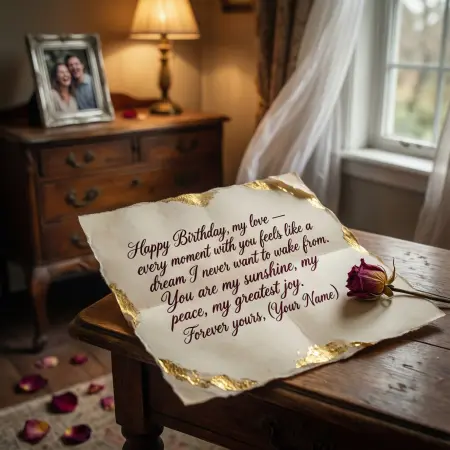 Happy Birthday, my love —
every moment with you feels like a
dream I never want to wake from.
You are my sunshine, my
peace, my greatest joy.
Forever yours, (Your Name)